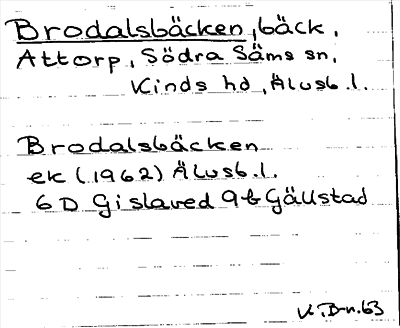 Brodalsbäcken, bäck,
Attorp, Södra Säms sn,
Kinds hd, Älvsb. l.
Brodalsbäcken
ek (1962) Älvsb. l.
6 D Gislaved 9 b Gällstad
V. B-n. 63